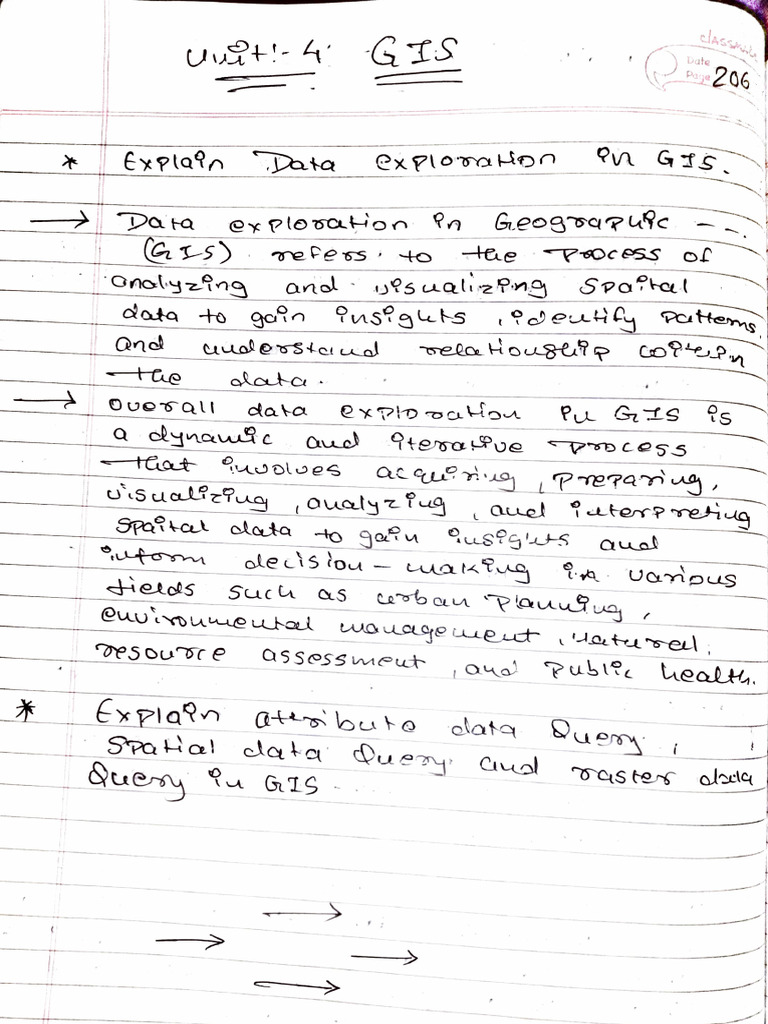 Unit:- 4 GIS
classmate
Date
Page 206
* Explain Data exploration in GIS.
→ Data exploration in Geographic ---.
(GIS) refers to the process of
analyzing and visualizing Spaital
data to gain insights, identify patterns,
and understand relationship within
the data.
→ overall data exploration in GIS is
a dynamic and iterative process
that involves acquiring, preparing,
visualizing, analyzing, and interpreting
spaital data to gain insights and
inform decision - making in various
fields such as urban planning,
environmental management, natural,
resource assessment, and public health.
* Explain attribute data Query,
Spatial data Query and raster data
Query in GIS.
→
→
→
→